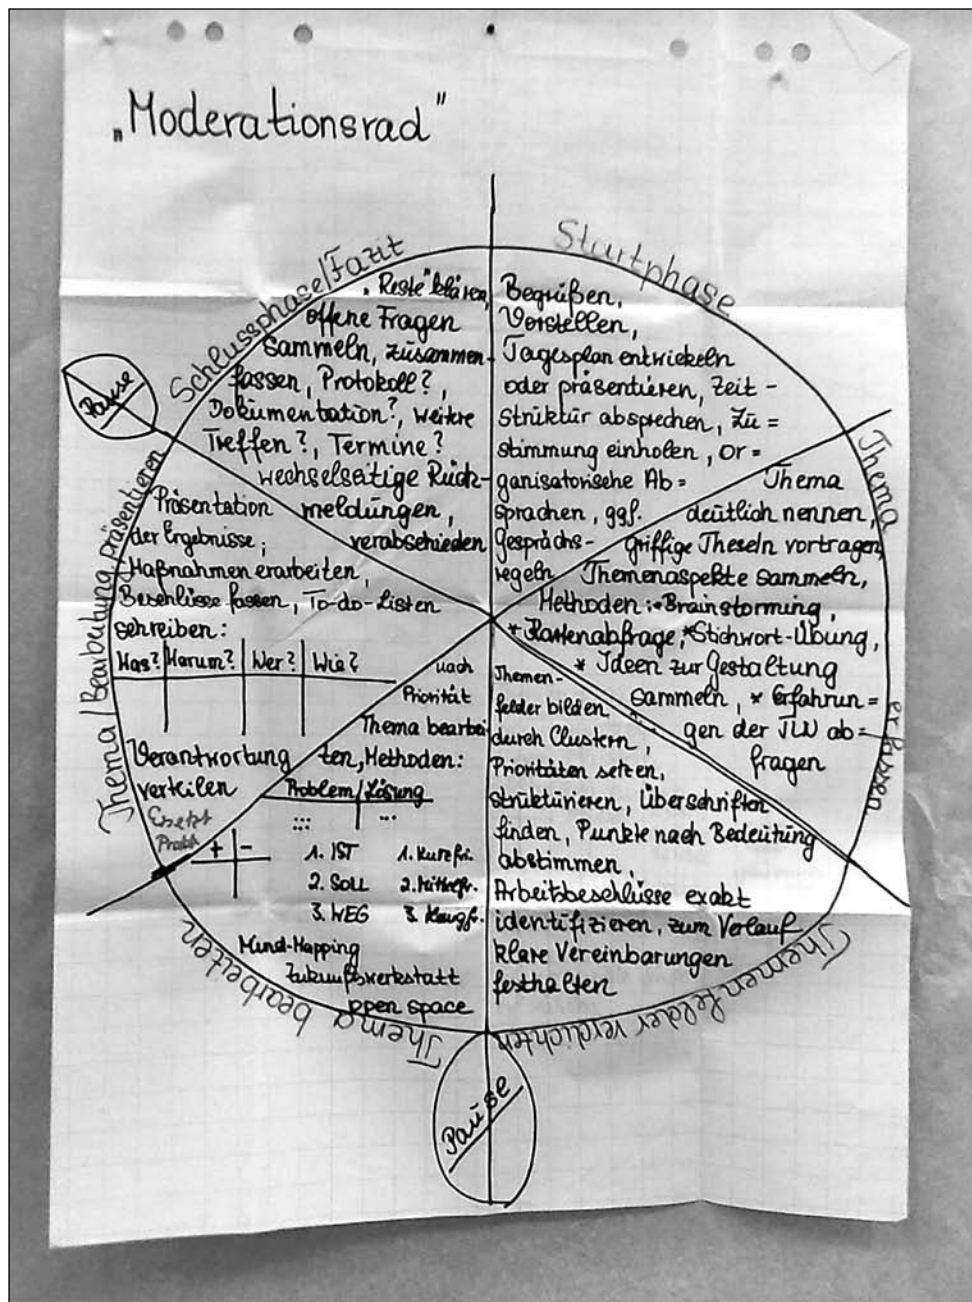 „Moderationsrad"
Startphase
Begrüßen,
Vorstellen,
Tagesplan entwickeln
oder präsentieren, Zeit-
struktur absprechen, Zu=
stimmung einholen, Or=
ganisatorische Ab=
sprachen, ggf.
Gesprächs-
regeln
Thema
erfassen
Thema
deutlich nennen,
griffige Theseln vortragen,
Themenaspekte sammeln,
Methoden: * Brainstorming,
* Kartenabfrage, * Stichwort-Übung,
* Ideen zur Gestaltung
sammeln, * Erfahrun=
gen der TLN ab=
fragen
Themenfelder verdichten
Themen-
felder bilden
durch Clustern,
Prioritäten setzen,
strukturieren, Überschriften
finden, Punkte nach Bedeutung
abstimmen,
Arbeitbeschlüsse exakt
identifizieren, zum Verlauf
klare Vereinbarungen
festhalten
Pause
Thema bearbeiten
nach
Priorität
Thema bearbei
ten, Methoden:
Problem/Lösung
+ -
1. IST 1. Kurzfri.
2. SOLL 2. Mittelfr.
3. WEG 3. Langf.
Mind-Mapping
Zukunftswerkstatt
open space
Thema/Bearbeitung präsentieren
Präsentation
der Ergebnisse,
Maßnahmen erarbeiten,
Beschlüsse fassen, To-do-Listen
schreiben:
Was? Warum? Wer? Wie?
Verantwortung
verteilen
Pause
Schlussphase/Fazit
„Reste" klären,
offene Fragen
sammeln, zusammen-
fassen, Protokoll?,
Dokumentation?, weitere
Treffen?, Termine?
wechselseitige Rück-
meldungen,
verabschieden